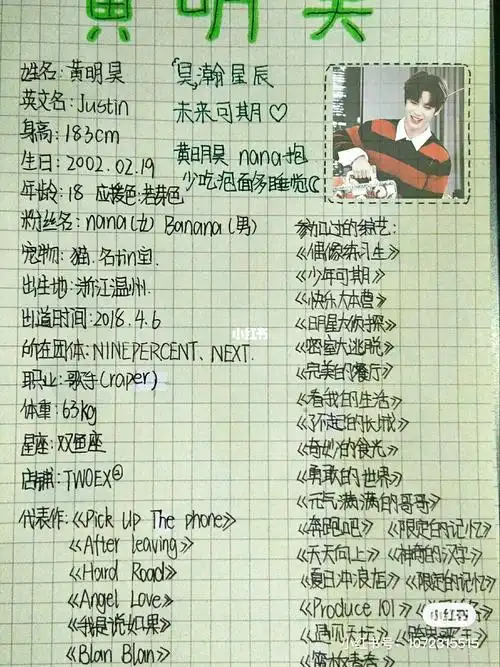 黄明昊
姓名:黄明昊
英文名:Justin
身高:183cm
生日:2002.02.19
年龄:18 应援色:若芽色
粉丝名:nana(女) Banana(男)
宠物:猫.名tin宝.
出生地:浙江温州.
出道时间:2018.4.6
所在团体:NINEPERCENT、NEXT.
职业:歌手(raper)
体重:63kg
星座:双鱼座
店铺:TWOEX
代表作:《Pick Up The phone》
《After leaving》
《Hard Road》
《Angel Love》
《我是说如果》
《Blan Blan》
「昊」瀚星辰
未来可期♡
黄明昊 nana抱
少吃泡面多睡觉
参加过的综艺:
《偶像练习生》
《少年可期》
《快乐大本营》
《明星大侦探》
《密室大逃脱》
《完美的餐厅》
《看我的生活》
《了不起的长城》
《奇妙的食光》
《勇敢的世界》
《元气满满的哥哥》
《奔跑吧》 《限定的记忆》
《天天向上》 《神奇的汉字》
《夏日冲浪店》 《限定的记忆》
《Produce 101》
小红书
小红书